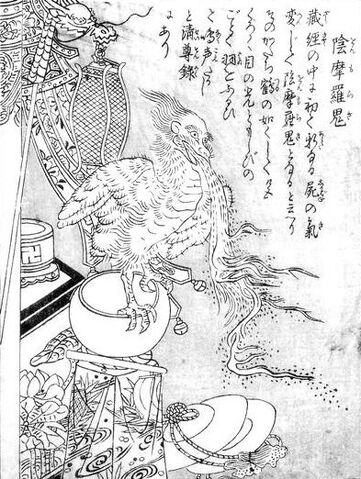 陰摩羅鬼
藏経の中に初て新なる屍の氣
変じて陰摩羅鬼となると云へり
そのかたち鶴の如くして色
くろく目の光ともしびの
ごとく羽をふるひ
て鳴声たかし
と清尊録
にあり